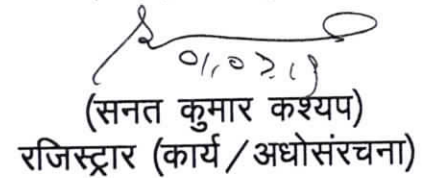 (सनत कुमार कश्यप)
रजिस्ट्रार (कार्य/अधोसंरचना)